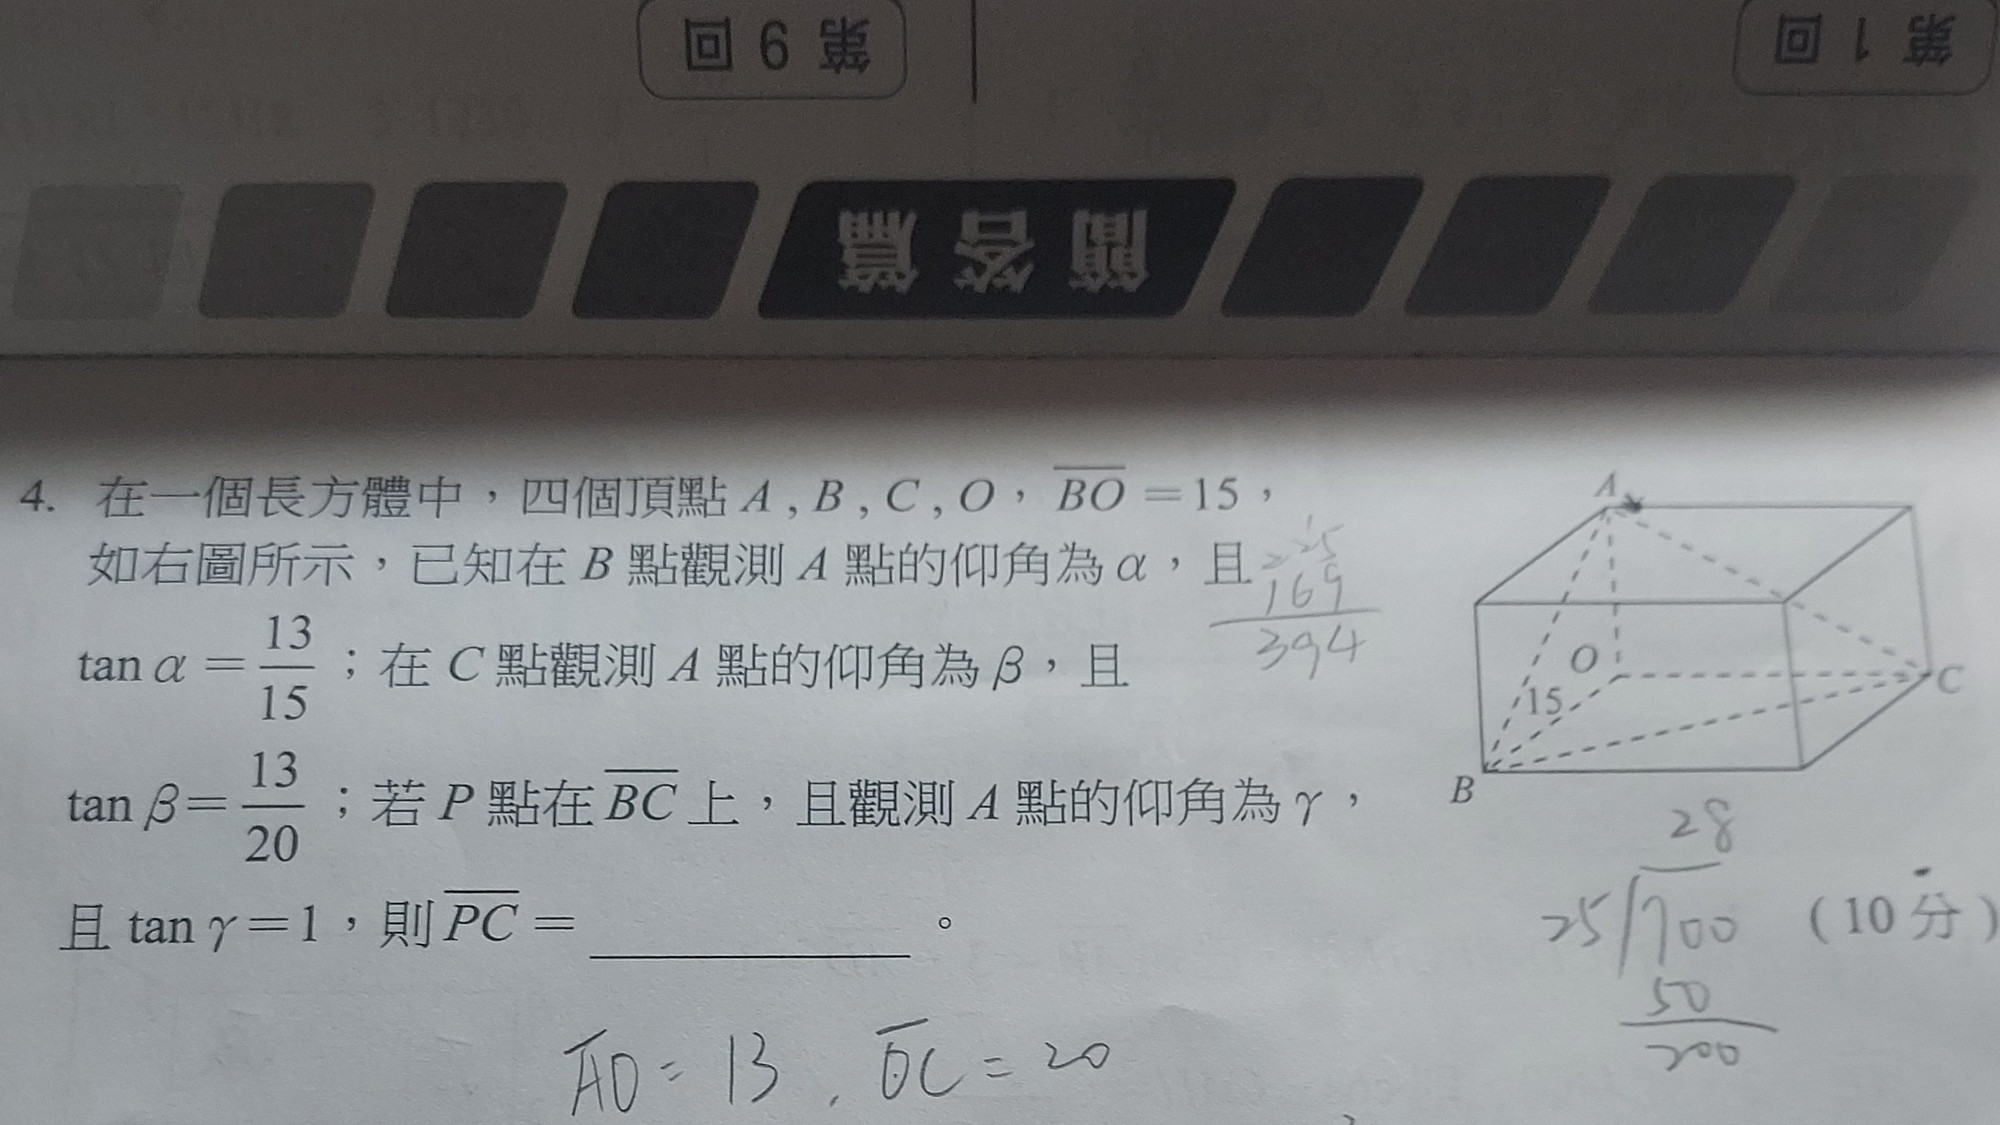 第 9 回
第 1 回
簡答篇
4. 在一個長方體中，四個頂點 A , B , C , O， \overline{BO} = 15，
如右圖所示，已知在 B 點觀測 A 點的仰角為 α，且
tan α = \frac{13}{15}；在 C 點觀測 A 點的仰角為 β，且
tan β = \frac{13}{20}；若 P 點在 \overline{BC} 上，且觀測 A 點的仰角為 γ，
且 tan γ = 1，則 \overline{PC} = ________。
(10 分)
A
O
C
15
B
225
169
394
28
25 700
50
200
\overline{AO} = 13 , \overline{OC} = 20